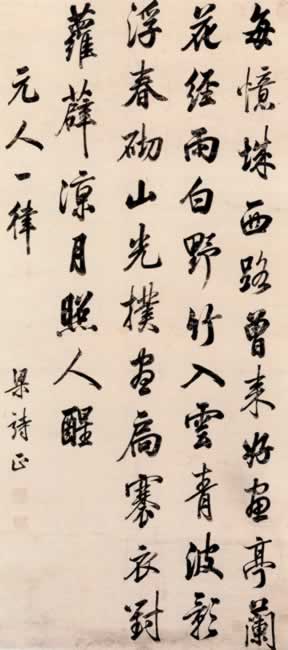 每憶城西路曾來好畫亭蘭
花經雨白野竹入雲青波影
浮春砌山光撲畫扃褰衣對
蘿薜涼月照人醒
元人一律
梁詩正